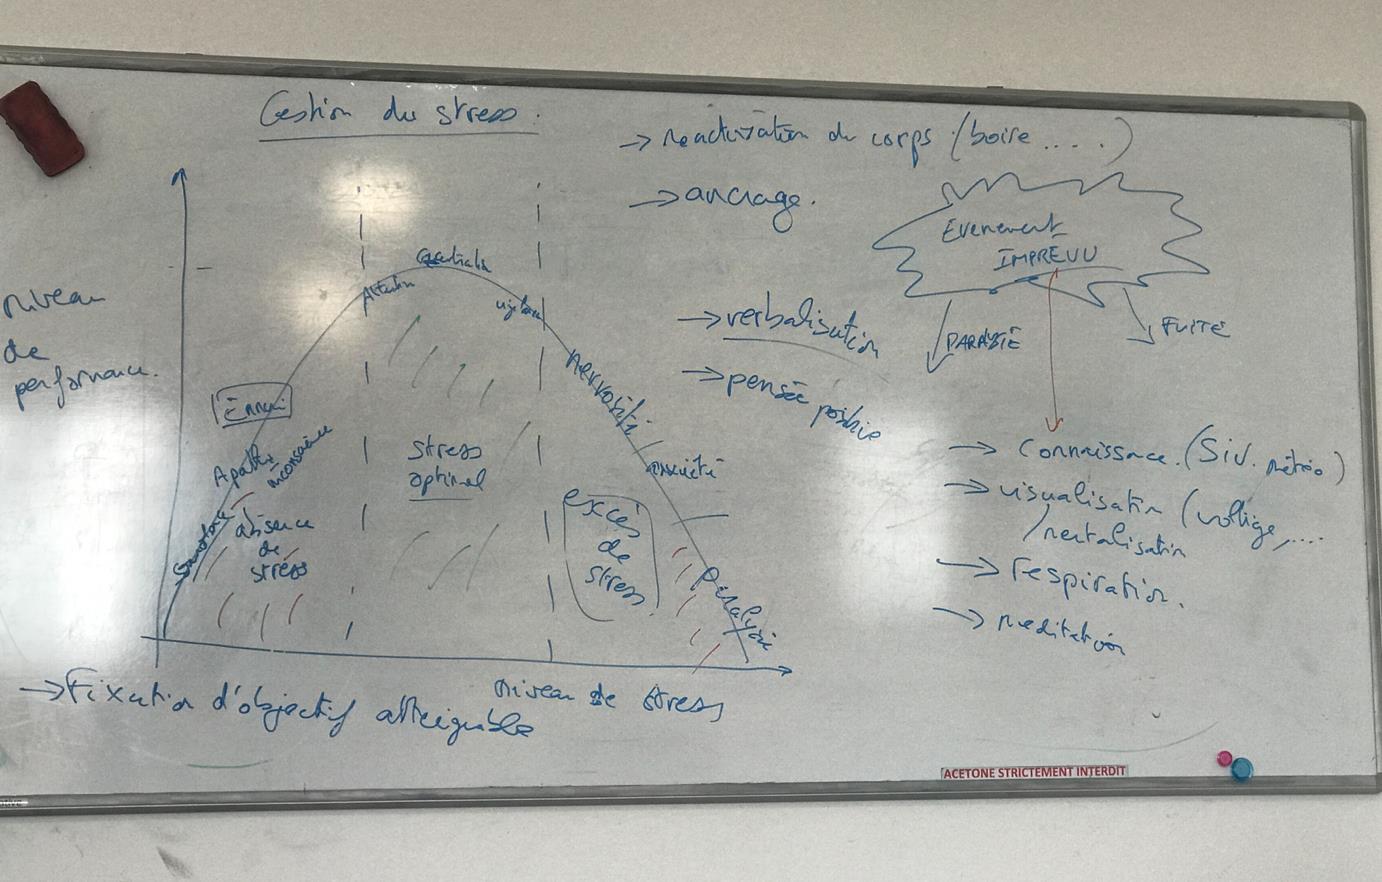 Gestion du stress.
niveau
de
performance.
Attention
Concentration
vigilance
Ennui
Apathie
inconscience
Somnolence
absence
de
stress
stress
optimal
nervosité
anxiété
excès
de
stress
Paralysie
niveau de stress
→ Fixation d'objectif atteignable
→ réactivation du corps (boire ....)
→ ancrage.
→ verbalisation
→ pensée positive
Evenement
IMPREVU
FUITE
→ Connaissance. (SiV. météo)
→ visualisation (voltige, ....
/mentalisation
→ respiration.
→ méditation
ACETONE STRICTEMENT INTERDIT